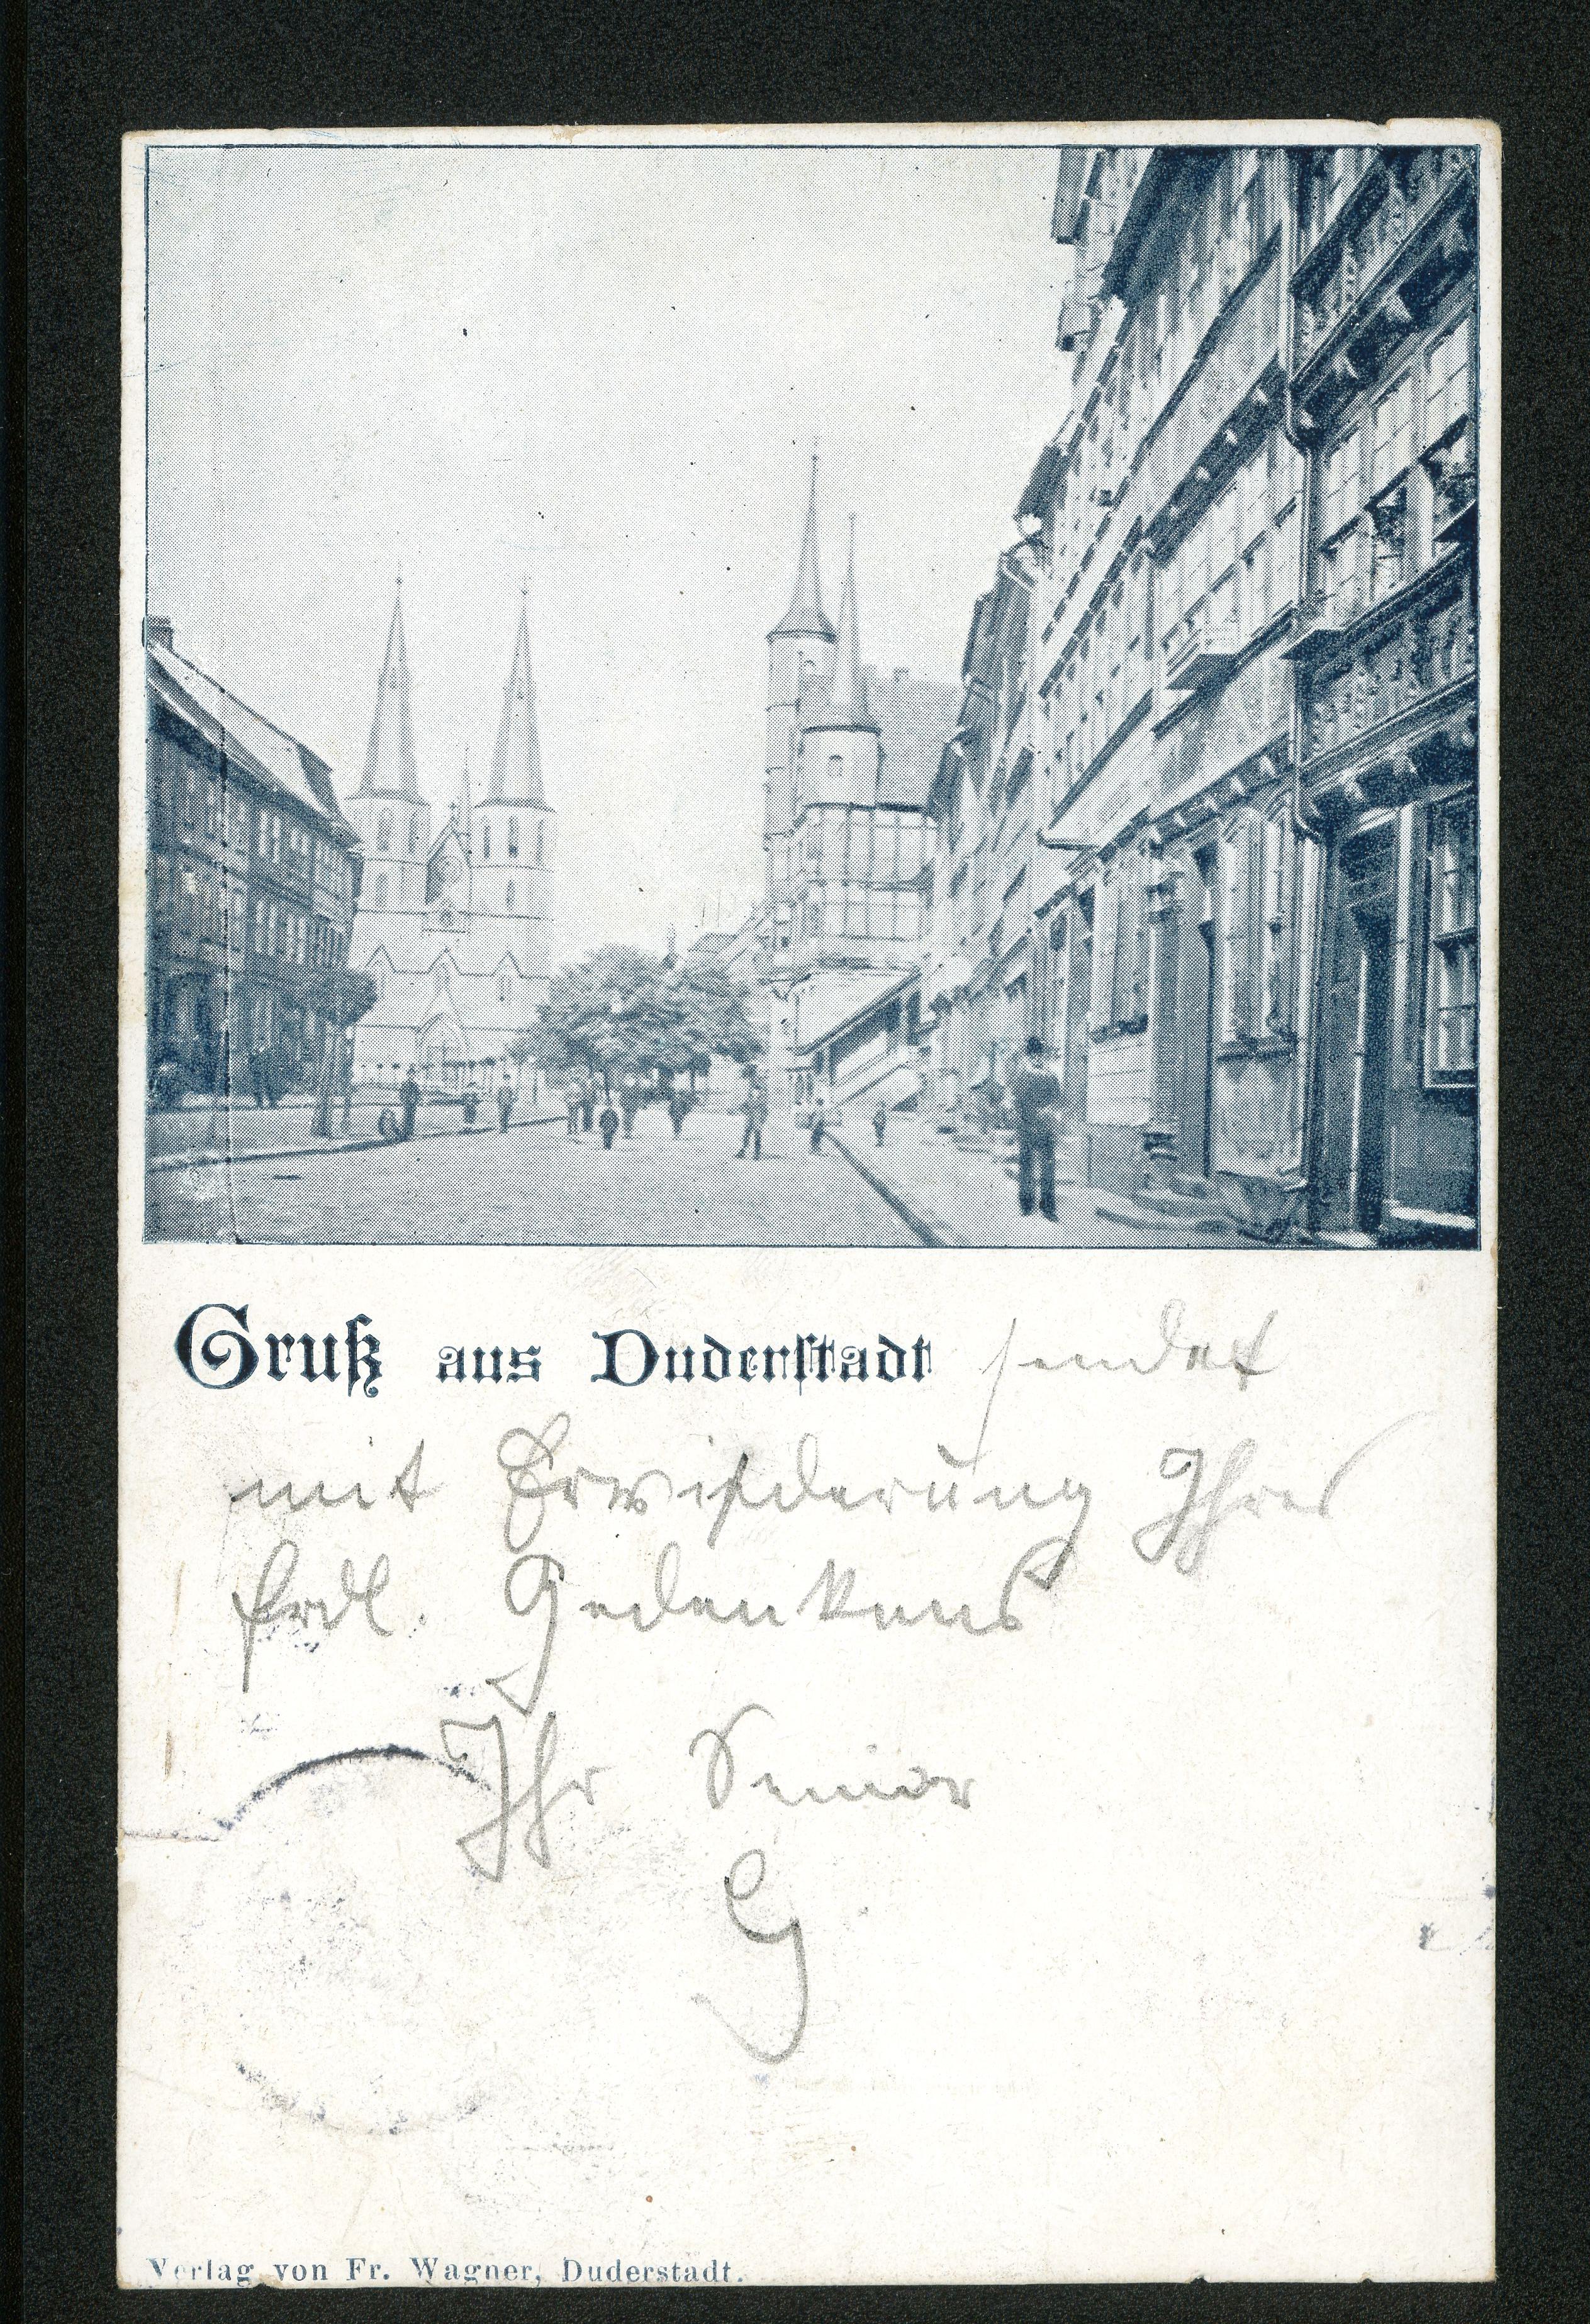 Gruß aus Duderstadt sendet
mit Erwiederung Ihres
frdl. Gedenkens
Ihr Senior
G
Verlag von Fr. Wagner, Duderstadt.